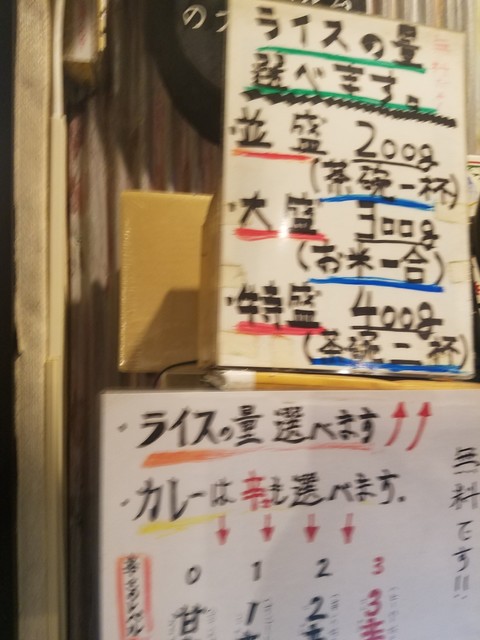 ライスの量
選べます。
・並盛 200g
(茶碗一杯)
・大盛 300g
(お米一合)
・特盛 400g
(茶碗二杯)
・ライスの量選べます
・カレーは辛さも選べます。
無料です!!
0 1 2 3
甘 1 2 3